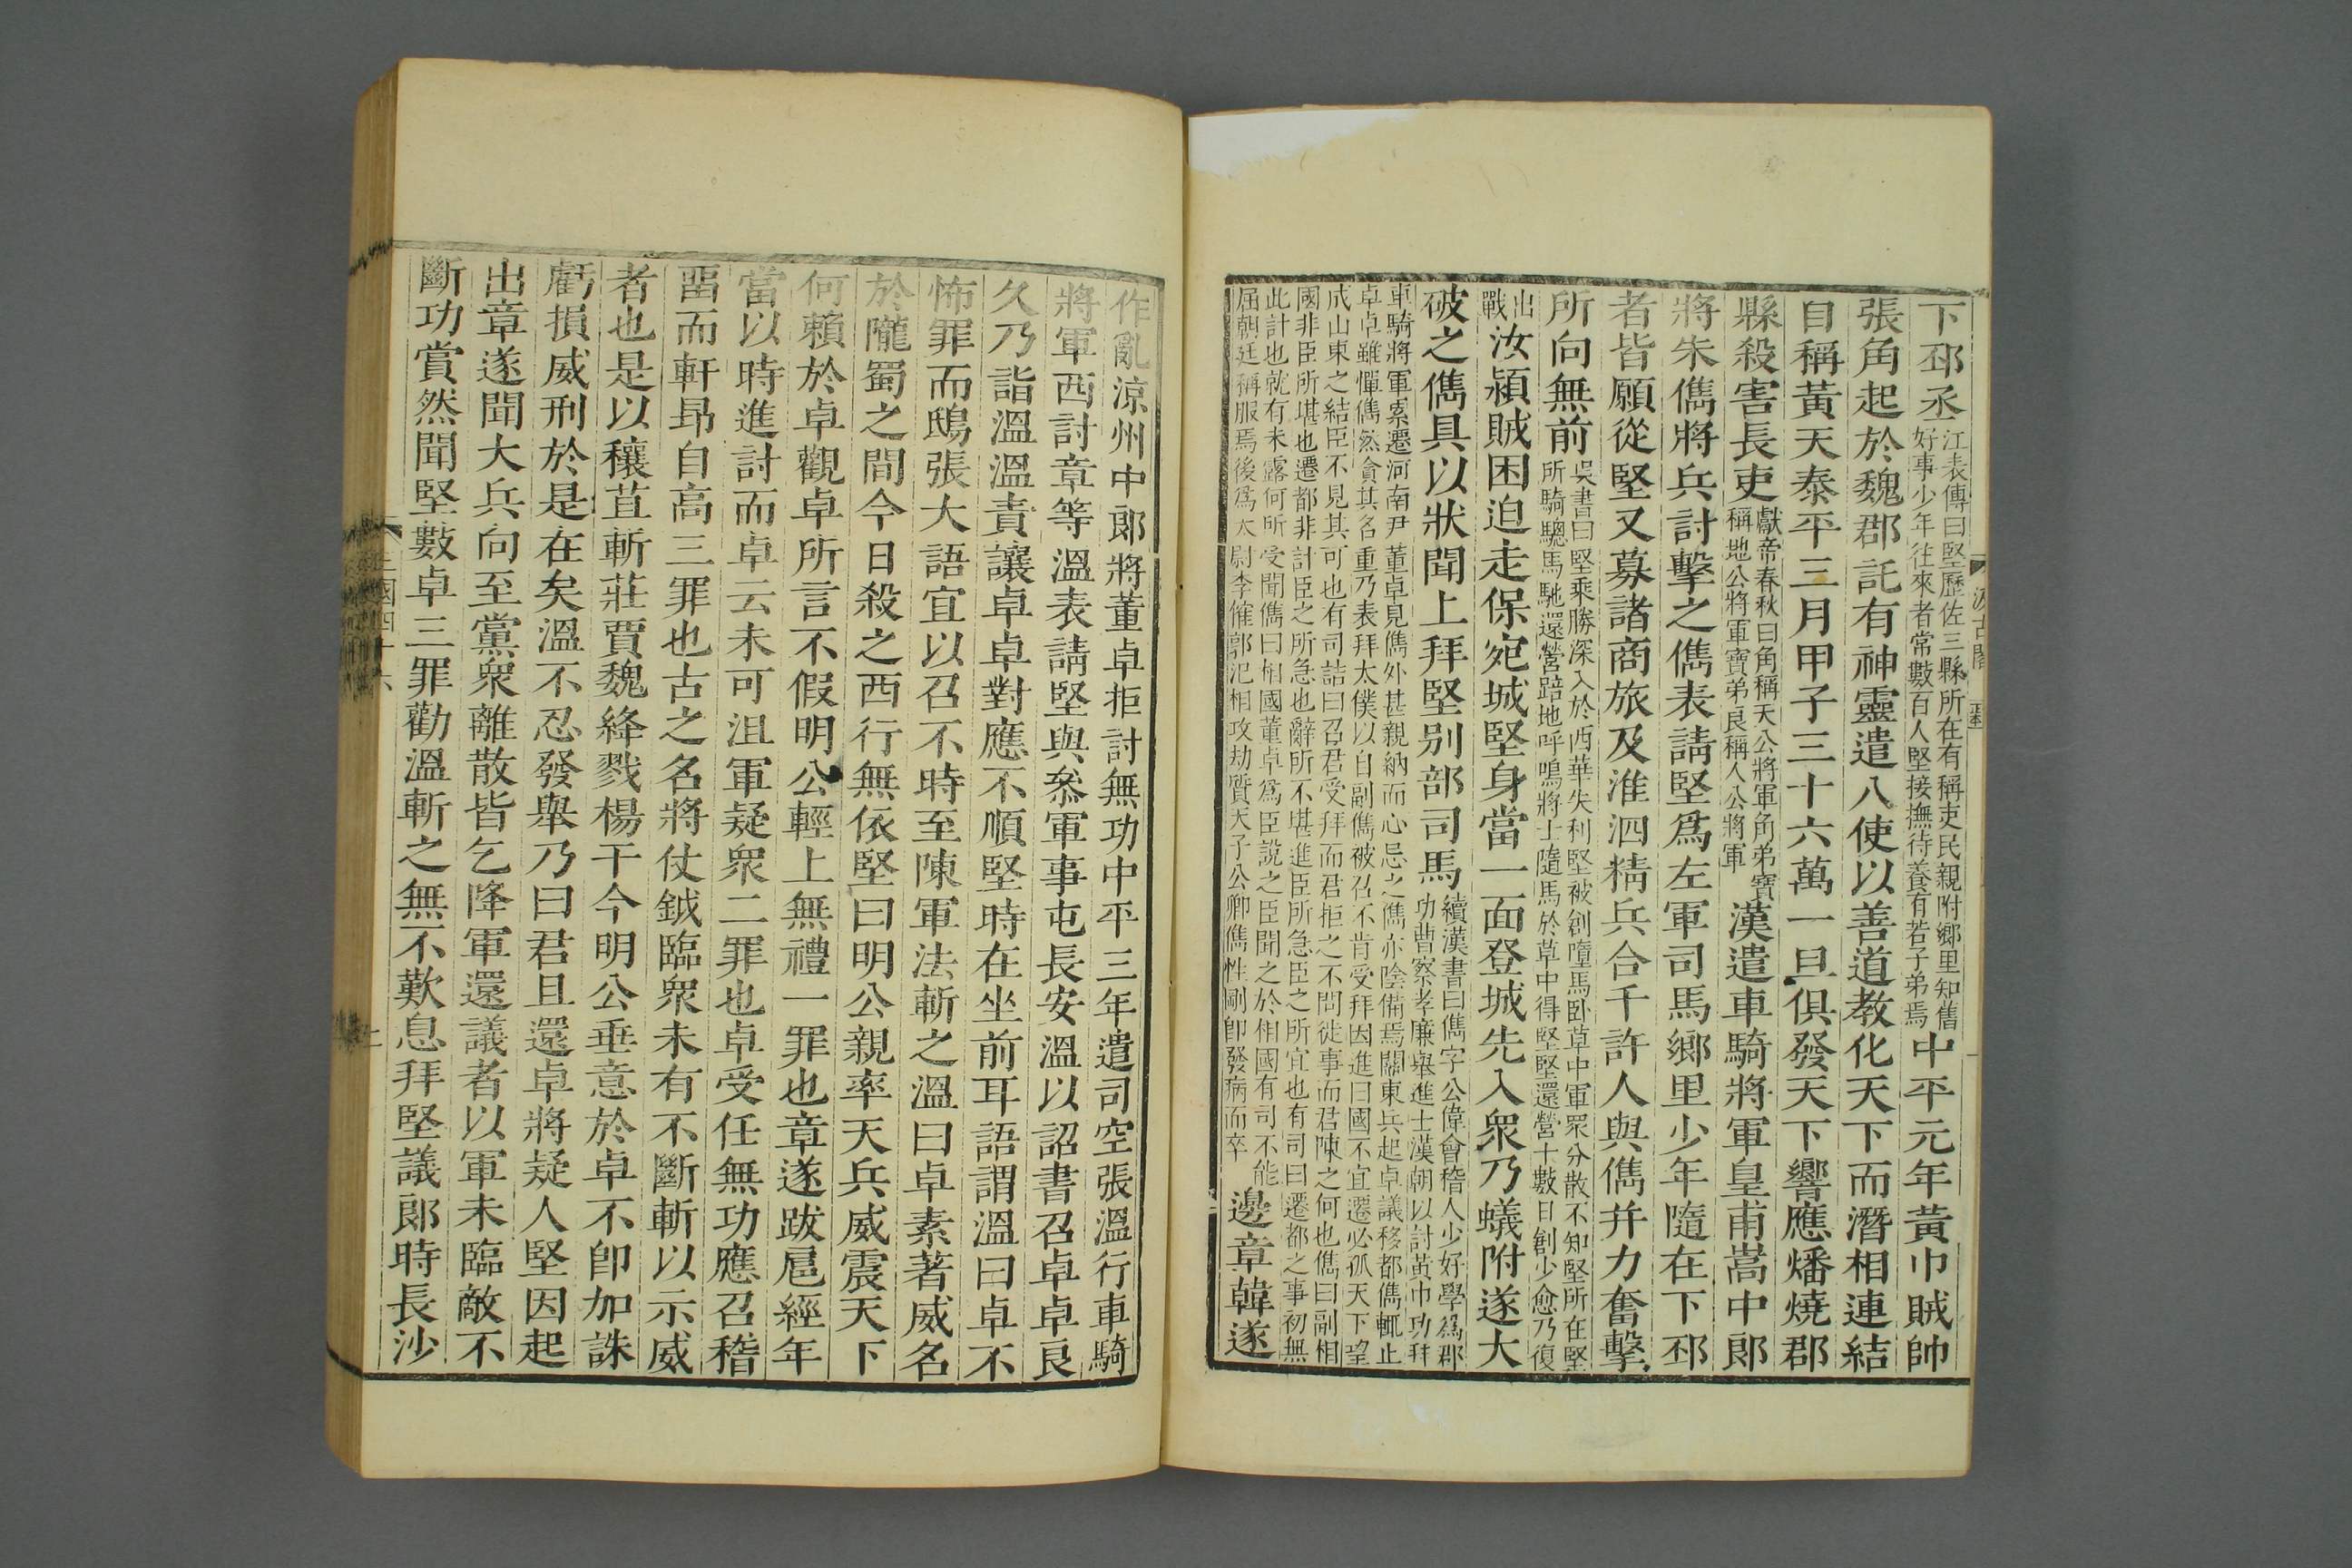 下邳丞江表傳曰堅歷佐三縣所在有稱吏民親附鄉里知舊好事少年往來者常數百人堅接撫待養有若子弟焉中平元年黃巾賊帥
張角起於魏郡託有神靈遣八使以善道教化天下而潛相連結
自稱黃天泰平三月甲子三十六萬一旦俱發天下響應燔燒郡
縣殺害長吏獻帝春秋曰角稱天公將軍角弟寶稱地公將軍寶弟良稱人公將軍漢遣車騎將軍皇甫嵩中郎
將朱儁將兵討擊之儁表請堅爲左軍司馬鄉里少年隨在下邳
者皆願從堅又募諸商旅及淮泗精兵合千許人與儁并力奮擊
所向無前吳書曰堅乘勝深入於西華失利堅被創墮馬卧草中軍眾分散不知堅所在堅所騎驄馬馳還營踣地呼鳴將士隨馬於草中得堅堅還營十數日創少愈乃復
出戰汝潁賊困迫走保宛城堅身當一面登城先入眾乃蟻附遂大
破之儁具以狀聞上拜堅別部司馬續漢書曰儁字公偉會稽人少好學爲郡功曹察孝廉舉進士漢朝以討黃巾功拜
車騎將軍累遷河南尹董卓見儁外甚親納而心忌之儁亦陰備焉關東兵起卓議移都儁輒止
卓卓雖憚儁然貪其名重乃表拜太僕以自副儁被召不肯受拜因進曰國不宜遷必孤天下望
成山東之結臣不見其可也有司詰曰召君受拜而君拒之不問徙事而君陳之何也儁曰副相
國非臣所堪也遷都非計臣之所急也辭所不堪進臣所急臣之所宜也有司曰遷都之事初無
此計也就有未露何所受聞儁曰相國董卓爲臣說之臣聞之於相國有司不能屈朝廷稱服焉後爲太尉李傕郭汜相攻劫質天子公卿儁性剛即發病而卒邊章韓遂
作亂涼州中郎將董卓拒討無功中平三年遣司空張溫行車騎
將軍西討章等溫表請堅與參軍事屯長安溫以詔書召卓卓良
久乃詣溫溫責讓卓卓對應不順堅時在坐前耳語謂溫曰卓不
怖罪而鴟張大語宜以召不時至陳軍法斬之溫曰卓素著威名
於隴蜀之間今日殺之西行無依堅曰明公親率天兵威震天下
何賴於卓觀卓所言不假明公輕上無禮一罪也章遂跋扈經年
當以時進討而卓云未可沮軍疑眾二罪也卓受任無功應召稽
畱而軒昂自高三罪也古之名將仗鉞臨眾未有不斷斬以示威
者也是以穰苴斬莊賈魏絳戮楊干今明公垂意於卓不卽加誅
虧損威刑於是在矣溫不忍發舉乃曰君且還卓將疑人堅因起
出章遂聞大兵向至黨眾離散皆乞降軍還議者以軍未臨敵不
斷功賞然聞堅數卓三罪勸溫斬之無不歎息拜堅議郎時長沙
三國四十六